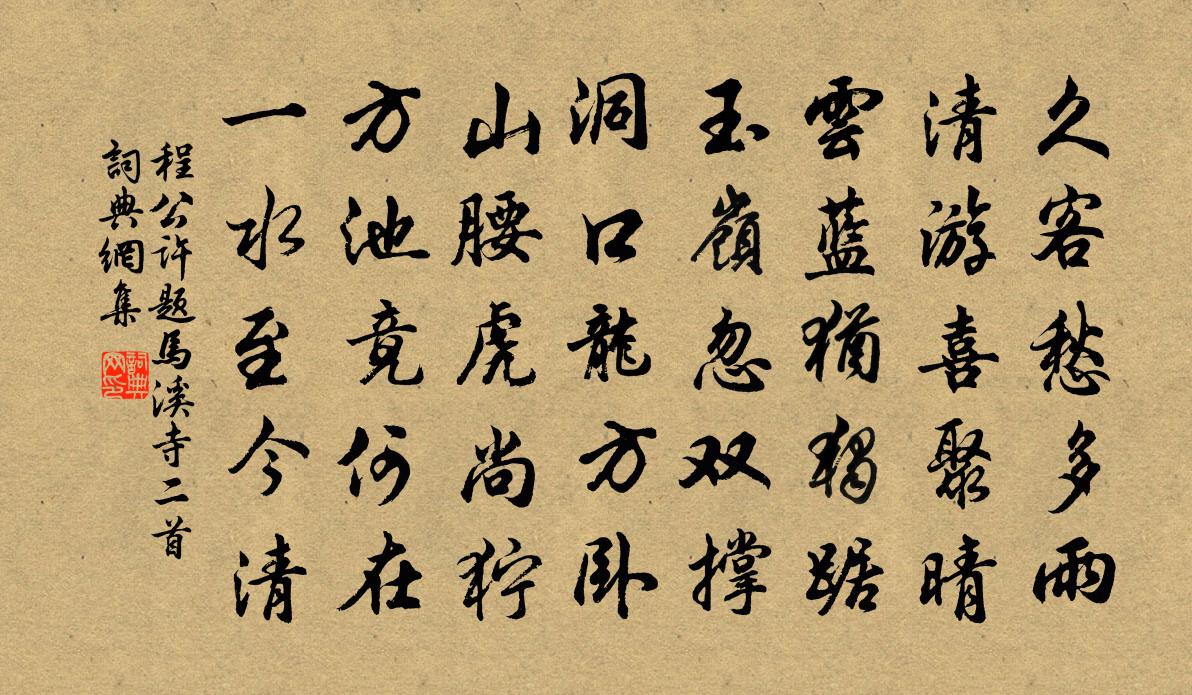 久客愁多雨
清游喜聚晴
雲藍猶獨踞
玉嶺忽双撐
洞口龍方卧
山腰虎尚狞
方池竟何在
一水至今清
程公许题馬溪寺二首
詞典網集
詞典网印